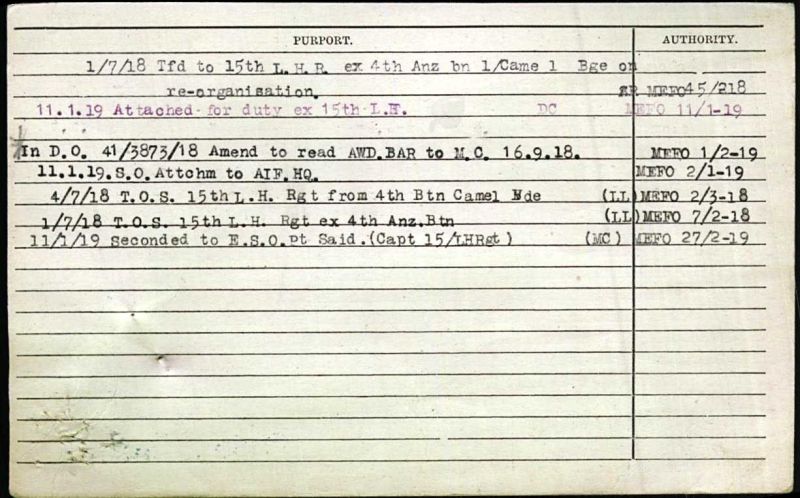 PURPORT. AUTHORITY.
1/7/18 Tfd to 15th L.H.R. ex 4th Anz bn 1/Came l Bge on
re-organisation. MEFO45/218
11.1.19 Attached for duty ex 15th L.H. DC MEFO 11/1-19
*In D.O. 41/3873/18 Amend to read AWD.BAR to M.C. 16.9.18. MEFO 1/2-19
11.1.19.S.O.Attchm to AIF.HQ. MEFO 2/1-19
4/7/18 T.O.S. 15th L.H. Rgt from 4th Btn Camel Bde (LL)MEFO 2/3-18
1/7/18 T.O.S. 15th L.H. Rgt ex 4th Anz.Btn (LL)MEFO 7/2-18
11/1/19 Seconded to E.S.O.Pt Said.(Capt 15/LHRgt) (MC) MEFO 27/2-19